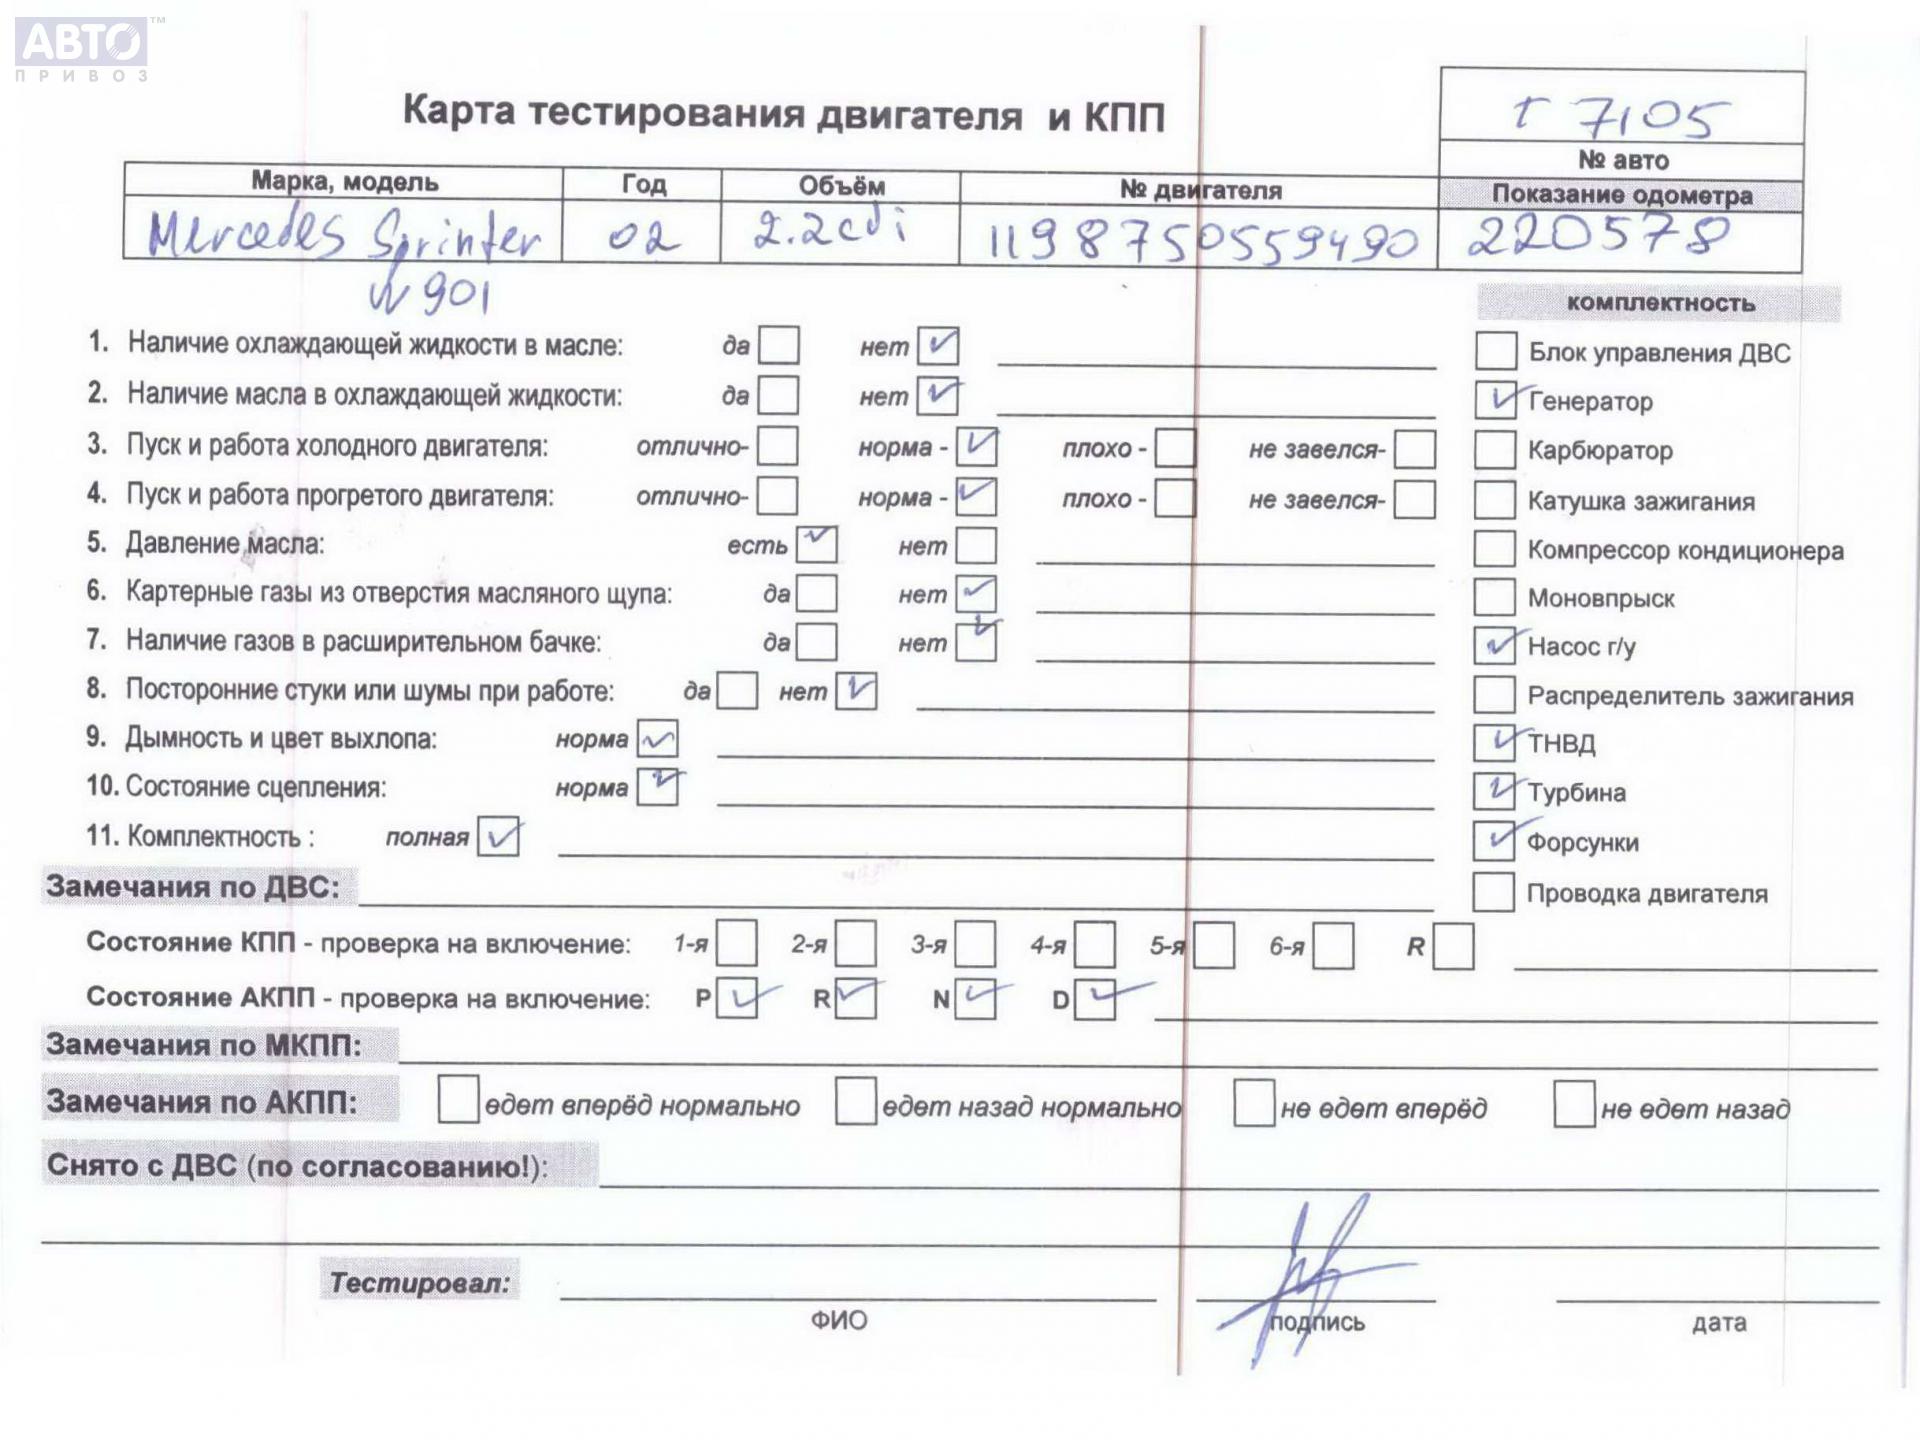 АВТО™
ПРИВОЗ
Карта тестирования двигателя и КПП
т 7105
№ авто
Марка, модель Год Объём № двигателя Показание одометра
Mercedes Sprinter 02 2.2cdi 1198750559490 220578
W901
комплектность
1. Наличие охлаждающей жидкости в масле: да нет ✓
Блок управления ДВС
2. Наличие масла в охлаждающей жидкости: да нет ✓
✓ Генератор
3. Пуск и работа холодного двигателя: отлично- норма - ✓ плохо - не завелся-
Карбюратор
4. Пуск и работа прогретого двигателя: отлично- норма - ✓ плохо - не завелся-
Катушка зажигания
5. Давление масла: есть ✓ нет
Компрессор кондиционера
6. Картерные газы из отверстия масляного щупа: да нет ✓
Моновпрыск
7. Наличие газов в расширительном бачке: да нет ✓
✓ Насос г/у
8. Посторонние стуки или шумы при работе: да нет ✓
Распределитель зажигания
9. Дымность и цвет выхлопа: норма ✓
✓ ТНВД
10. Состояние сцепления: норма ✓
✓ Турбина
11. Комплектность : полная ✓
✓ Форсунки
Замечания по ДВС:
Проводка двигателя
Состояние КПП - проверка на включение: 1-я 2-я 3-я 4-я 5-я 6-я R
Состояние АКПП - проверка на включение: P ✓ R ✓ N ✓ D ✓
Замечания по МКПП:
Замечания по АКПП: едет вперёд нормально едет назад нормально не едет вперёд не едет назад
Снято с ДВС (по согласованию!):
Тестировал:
ФИО подпись дата